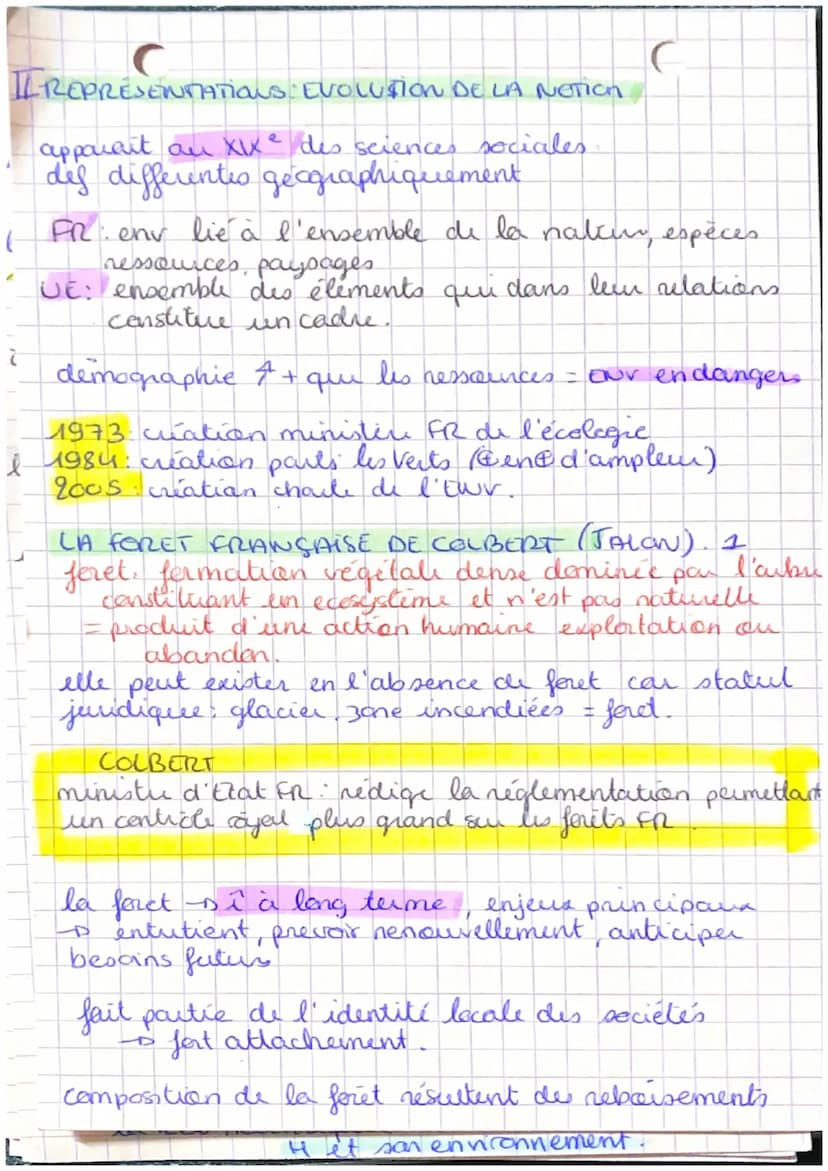 II REPRÉSENTATIONS : EVOLUTION DE LA NOTION
apparait au XIXe des sciences sociales
def differentes géographiquement
FR : env lié à l'ensemble de la nature, espèces
ressources, paysages
UE : ensemble des éléments qui dans leur relations
constitue un cadre.
démographie ↑ + que les ressources = env en danger
1973 : création ministère FR de l'écologie
1984 : création parti les Verts (⊕ en ⊕ d'ampleur)
2005 : création charte de l'Env.
LA FORET FRANÇAISE DE COLBERT (JALON). 1
foret : formation végétale dense dominée par l'arbre
constituant un ecosystème et n'est pas naturelle
= produit d'une action humaine exploitation ou
abandon.
elle peut exister en l'absence de foret car statut
juridique : glacier, zone incendiées = foret.
COLBERT
ministre d'Etat FR : rédige la réglementation permettant
un contrôle royal plus grand sur les forêts FR
la foret → î à long terme, enjeux principaux
→ entretient, prevoir renouvellement, anticiper
besoins futurs
fait partie de l'identité locale des sociétés
→ fort attachement.
composition de la forêt résultent des reboisements
H et son environnement.